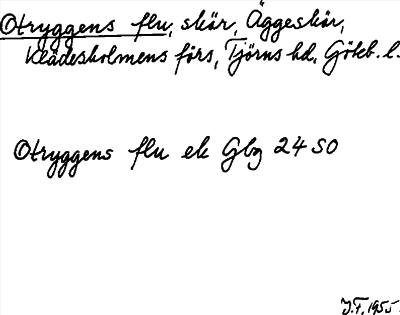 Otryggens flu, skär, Äggeskär,
Klädesholmens förs, Tjörns hd, Göteb. l.
Otryggens flu ek Gbg 24 SO
J.F. 1955.